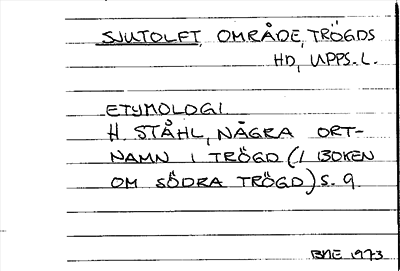 SJUTOLFT, OMRÅDE, TRÖGDS
HD, UPPS. L.
ETYMOLOGI
H. STÅHL, NÅGRA ORT-
NAMN I TRÖGD (I BOKEN
OM SÖDRA TRÖGD) S. 9.
BME 1973